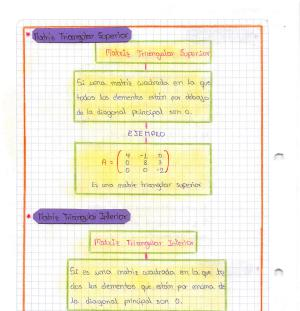 Matriz Triangular Superior
Matriz Triangular Superior
Si una matriz cuadrada en la que
todos los elementos están por debajo
de la diagonal principal son 0.
EJEMPLO
A = ( 4 -1 0
0 8 3
0 0 -2 )
Es una matriz triangular superior
Matriz Triangular Inferior
Matriz Triangular Inferior
Si es una matriz cuadrada en la que to
dos los elementos que están por encima de
la diagonal principal son 0.